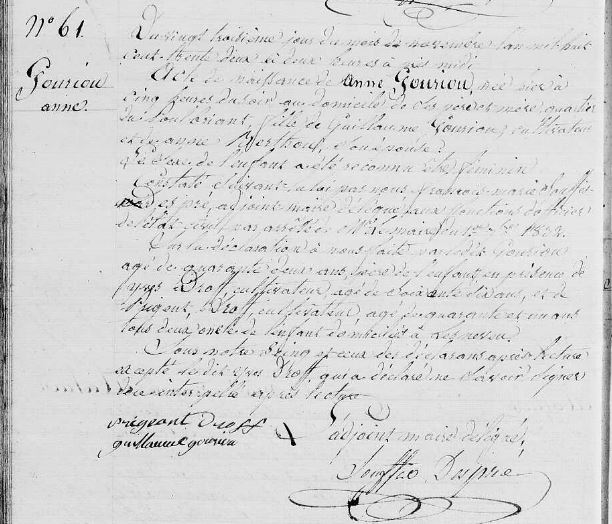 N° 61.
Gouriou
anne.
Du vingt troisième jour du mois de novembre l'an mil huit
cent trente deux à deux heures après midi
Acte de naissance de anne Gouriou, née hier à
cinq heures du soir au domicile de ses père et mère, quartier
du tout orient, fille de Guillaume Gouriou, cultivateur
et de anne son épouse
Le sexe de l'enfant a été reconnu être féminin
Constaté suivant la loi par nous françois marie
Dupré, adjoint maire délégué aux fonctions d'officier
de l'état civil par arrêté de Mr le maire du 1832.
Sur la déclaration à nous faite par le dit Gouriou
agé de quarante deux ans, père de l'enfant, en présence de
yves Droff, cultivateur, agé de ans, et de
Prigent Droff, cultivateur, agé de quarante et un ans
tous deux oncle de l'enfant domiciliés à
Sous notre seing et ceux des déclarans après lecture
excepté le dit yves Droff, qui a déclaré ne savoir signer
de ce interpellé après lecture
prigeant Droff
guillaume gouriou
L'adjoint maire délégué,
Souffès Dupré